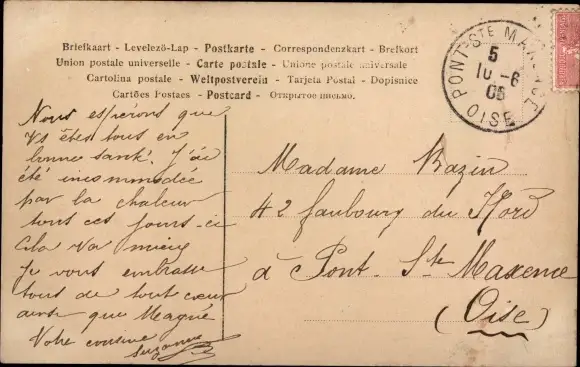 Briefkaart - Levelezö-Lap - Postkarte - Correspondenzkart - Brefkort
Union postale universelle - Carte postale - Unione postale universale
Cartolina postale - Weltpostverein - Tarjeta Postal - Dopisnice
Cartões Postaes - Postcard - Открытое письмо.
PONT-STE MAXENCE
5
10 - 6
05
OISE
Nous espérons que
Vs êtes tous en
bonne santé. J'ai
été incommodée
par la chaleur
tout ces jours-ci
Cela va mieux
Je vous embrasse
tous de tout cœur
ainsi que
Votre cousine
Suzanne
Madame Bazin
42 faubourg du Nord
à Pont. Ste Maxence
(Oise)